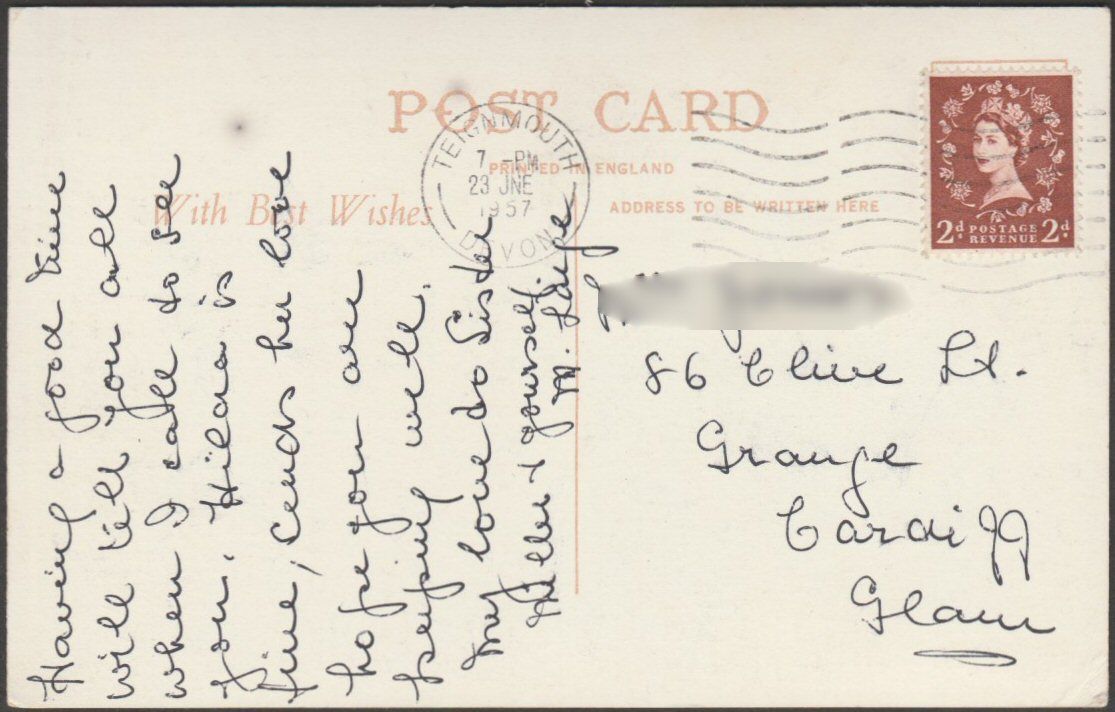 POST CARD
PRINTED IN ENGLAND
With Best Wishes
ADDRESS TO BE WRITTEN HERE
TEIGNMOUTH
7 - PM
23 JNE
1957
DEVON
2d POSTAGE REVENUE 2d
Having a good time
will tell you all
when I call to see
you. Hilara is
fine, sends her love
hope you are
keeping well.
My love to Sister
Hellen & yourself.
M.
86 Clive St.
Grange
Cardiff
Glam